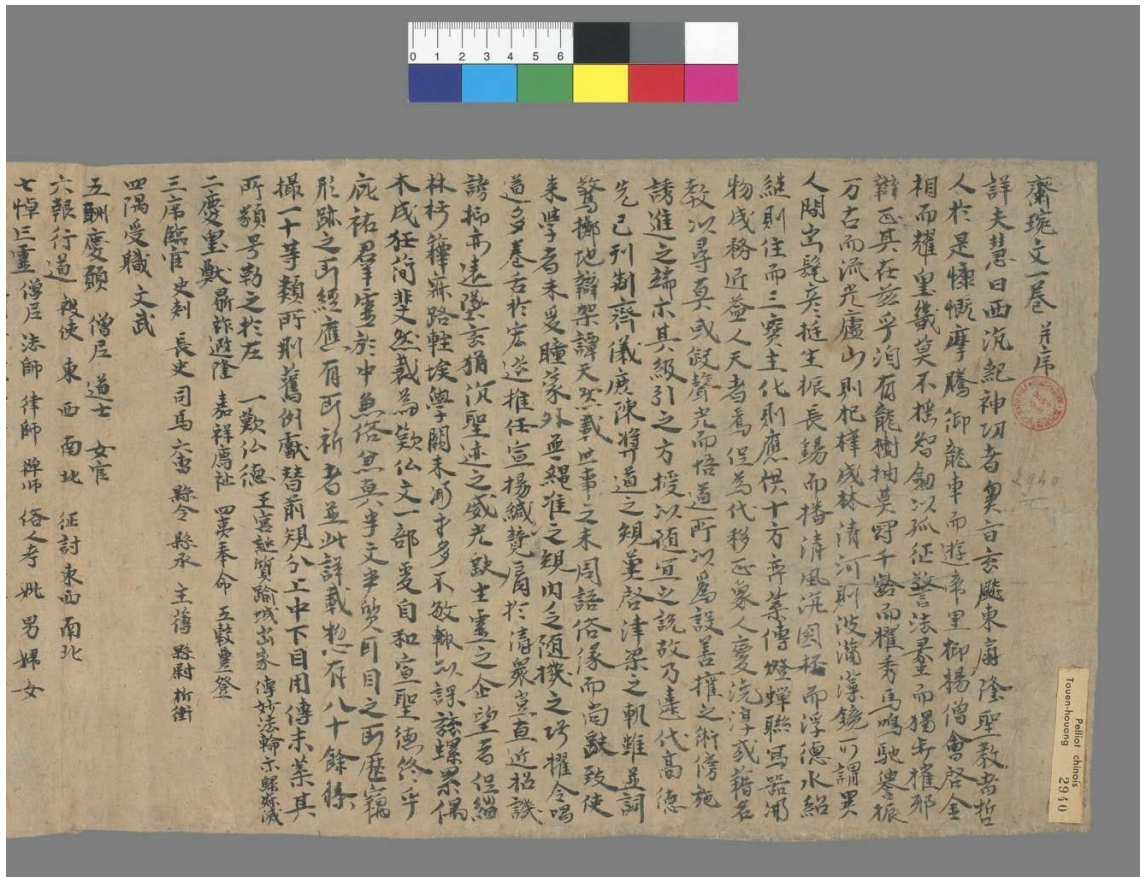 齋琬文一卷 并序
詳夫慧日西沉紀神功者奧旨玄飈東扇隆聖教者哲
人於是慷慨摩騰御龍車而遊帝里抑揚僧會啓金
相而耀皇畿莫不搖智劒以孤征警法鼓而獨步摧邪
辯正其在茲乎洎有龍樹抽英冠千齡而擢秀馬鳴馳譽振
万古而流光廬山則杞梓成林清河則波瀾藻鏡可謂異
人閒出髦彥挺生振長錫而播清風汎圓杯而浮德水紹
繼則住而三寶主化則應供十方弈葉傳燈蟬聯寫器
物成務近益人天者焉但為代移正象人變澆淳或藉名
教以尋真或假聲光而悟道所以爲設善權之術傍施
誘進之端示其級引之方授以隨宜之說故乃遠代高德
先已刊制齊儀庶陳奬道之規冀啓津梁之軌雖並詞
驚擲地辯架譚天然載世事之未周語俗緣而尚缺致使
來學者未受瞳蒙外無繩准之規內乏隨機之巧擢令唱
道多卷舌於宏筵推任宣揚緘贊脣於清衆豈直近招譏
謗抑亦遠墜玄猷沉聖迹之威光缺生靈之企望者但緇
林朽籜寂路輕埃學闕未聞才多不敏輒以課諸螺累偶
木成狂簡斐然裁為歎仏文一部爰自和宣聖德終乎
庇祐羣靈於中兼俗兼真半文半質耳目之所歷竊
形跡之所經應有所祈者並此詳載惣有八十餘條
撮一十等類所削舊例獻替前規分上中下目用傳末葉其
所顈号勒之於左 一歎仏德 王宮誕質 踰城出家 傳妙法輪 示歸寂滅
二慶皇猷 鼎祚遐隆 嘉祥薦祉 四夷奉命 五穀豐登
三序臨官 史刾 長史 司馬 六曹 縣令 縣丞 主薄 縣尉 折衝
四隅受職 文武
五酬慶願 僧尼 道士 女官
六報行道 被使 東西南北 征討東西南北
七悼亡靈 僧尼 法師 律師 禪師 俗人考妣男婦女
Pelliot chinois
Touen-houang 2940
2940
0 1 2 3 4 5 6